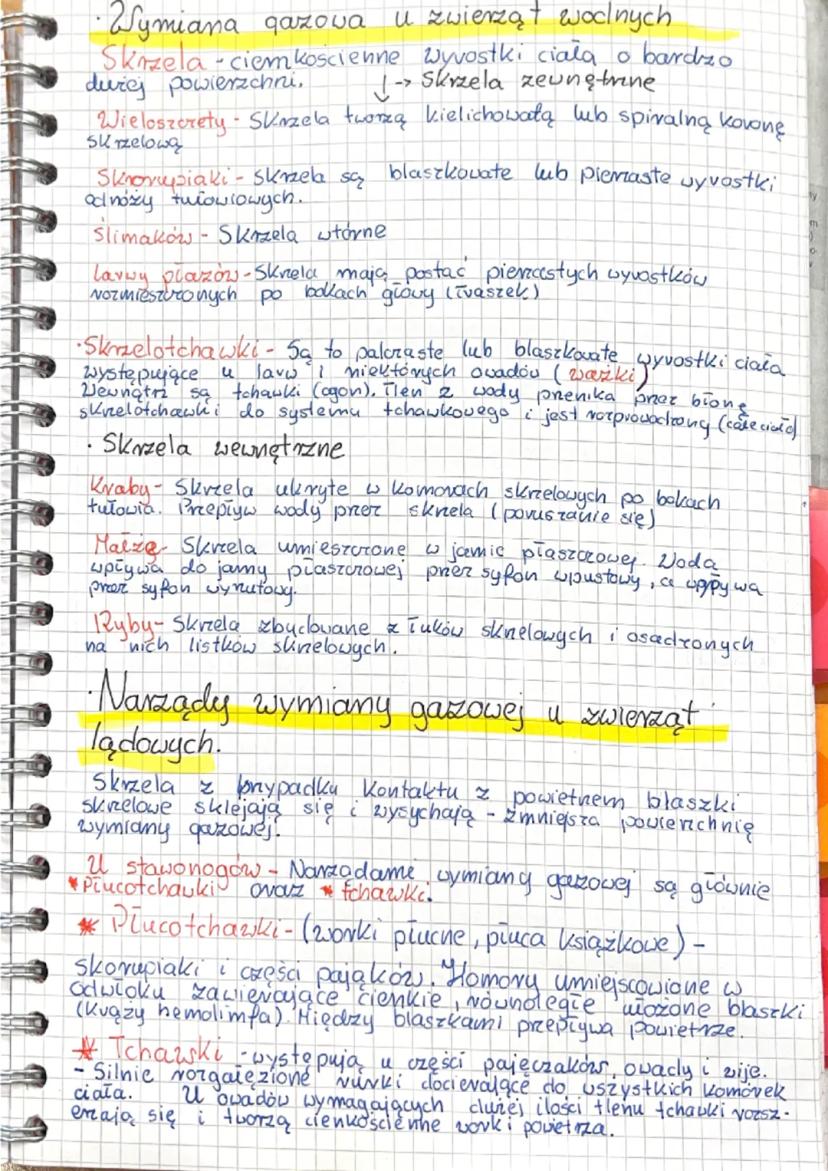 · Wymiana gazowa u zwierząt wodnych
Skrzela - cienkościenne wyrostki ciała o bardzo
dużej powierzchni. ↓→ Skrzela zewnętrzne
Wieloszczety - Skrzela tworzą kielichowatą lub spiralną koronę
skrzelową
Skorupiaki - skrzela są blaszkowate lub pierzaste wyrostki
odnóży tułowiowych.
Ślimaków - Skrzela wtórne
Larwy płazów - Skrzela mają postać pierzastych wyrostków
rozmieszczonych po bokach głowy (
· Skrzelotchawki - Są to palczaste lub blaszkowate wyrostki ciała
występujące u larw i niektórych owadów (ważki)
Wewnątrz są tchawki (ogon). Tlen z wody przenika przez błonę
skrzelotchawki do systemu tchawkowego i jest rozprowadzony (całe ciało)
· Skrzela wewnętrzne
Kraby - Skrzela ukryte w komorach skrzelowych po bokach
tułowia. Przepływ wody przez skrzela (poruszanie się)
Małże - Skrzela umieszczone w jamie płaszczowej. Woda
wpływa do jamy płaszczowej przez syfon wpustowy, a wypływa
przez syfon wyrzutowy.
Ryby - Skrzela zbudowane z łuków skrzelowych i osadzonych
na nich listków skrzelowych.
· Narządy wymiany gazowej u zwierząt
lądowych.
Skrzela z przypadku kontaktu z powietrzem blaszki
skrzelowe sklejają się i wysychają - zmniejsza powierzchnię
wymiany gazowej.
U stawonogów - Narządami wymiany gazowej są głównie
* Płucotchawki oraz * tchawki.
* Płucotchawki - (worki płucne, płuca książkowe) -
skorupiaki i części pająków. Komory umiejscowione w
odwłoku zawierające cienkie, równolegle ułożone blaszki
(krąży hemolimfa). Między blaszkami przepływa powietrze.
* Tchawki - występują u części pajęczaków, owady i wije.
- Silnie rozgałęzione rurki docierające do wszystkich komórek
ciała. U owadów wymagających dużej ilości tlenu tchawki rozsz-
erzają się i tworzą cienkościenne worki powietrza.